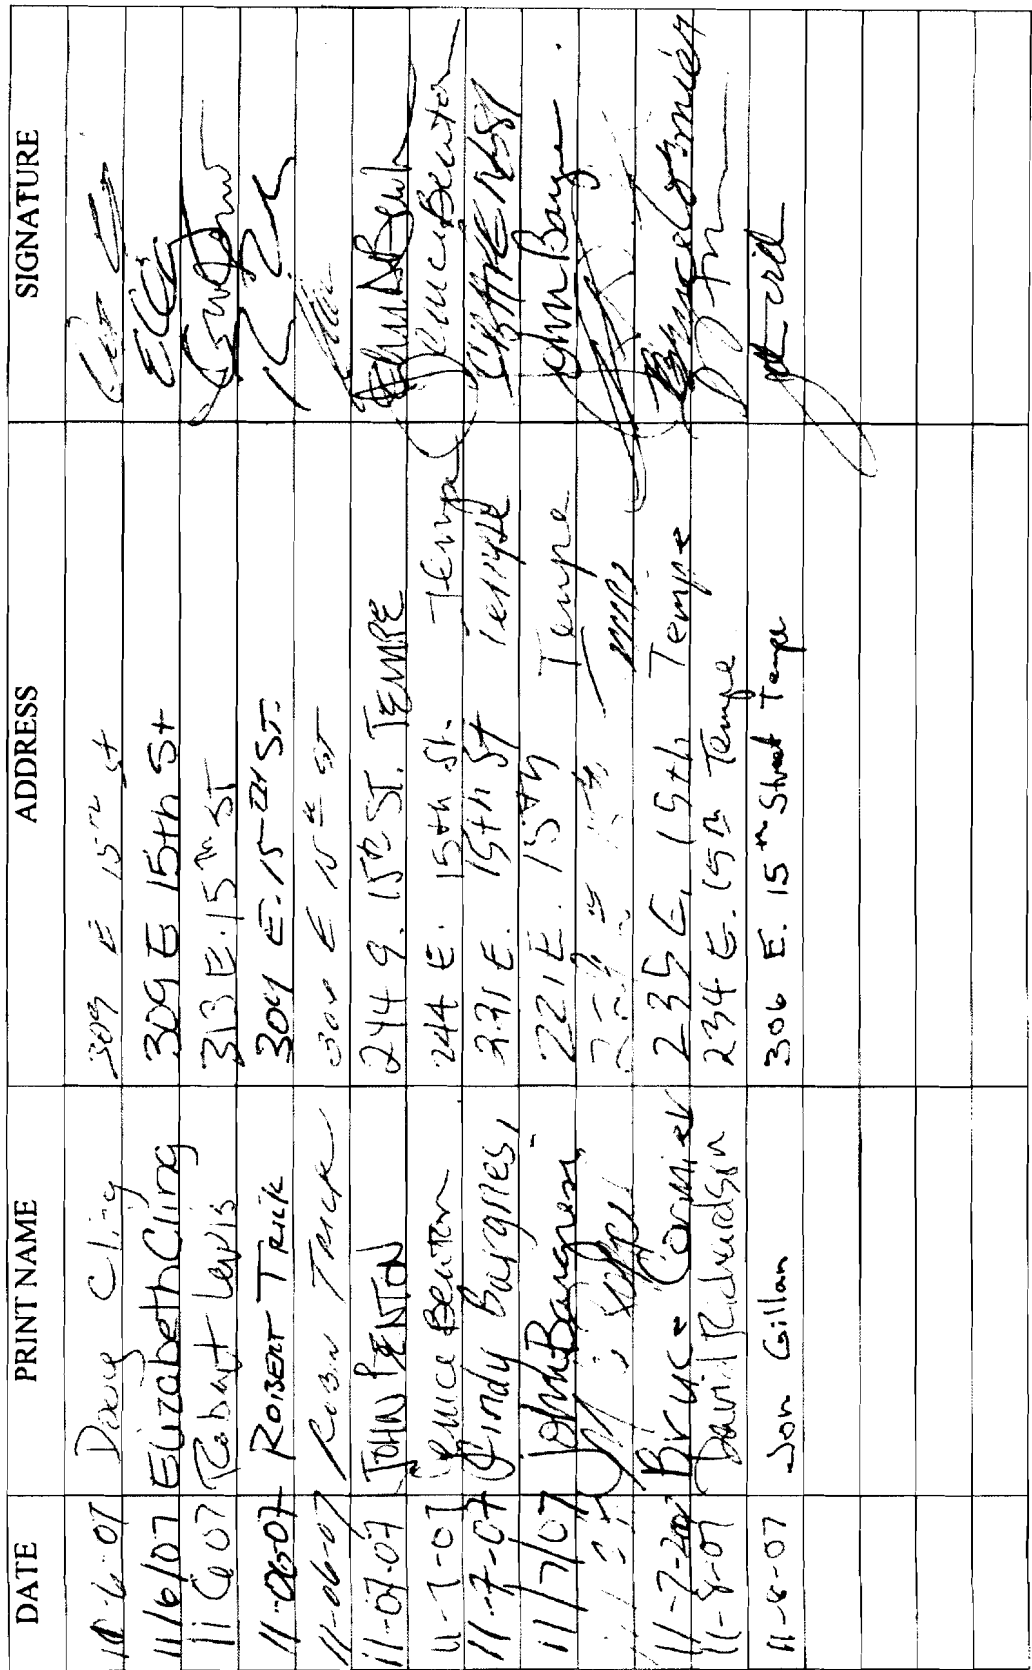 DATE PRINT NAME ADDRESS SIGNATURE
11-6-07 Doug Cling 309 E 15th St
11/6/07 Elizabeth Cling 309 E 15th St
11 6 07 Robert Lewis 313 E. 15th ST
11-06-07 ROBERT TRICK 304 E. 15TH ST.
11-06-07 ROBIN TRICK 304 E 15th ST
11-07-07 JOHN BENTON 244 E. 15th ST. TEMPE
11-7-07 Benton 244 E. 15th St. Tempe Benton
11-7-07 Cindy 221 E. 15th St Tempe
11/7/07 John 221 E. 15th Tempe John
11-7-2007 Bruce Cormier 235 E, 15th Tempe Bruce Cormier
11-8-07 David Richardson 234 E. 15th Tempe
11-8-07 Jon Gillan 306 E. 15th Street Tempe